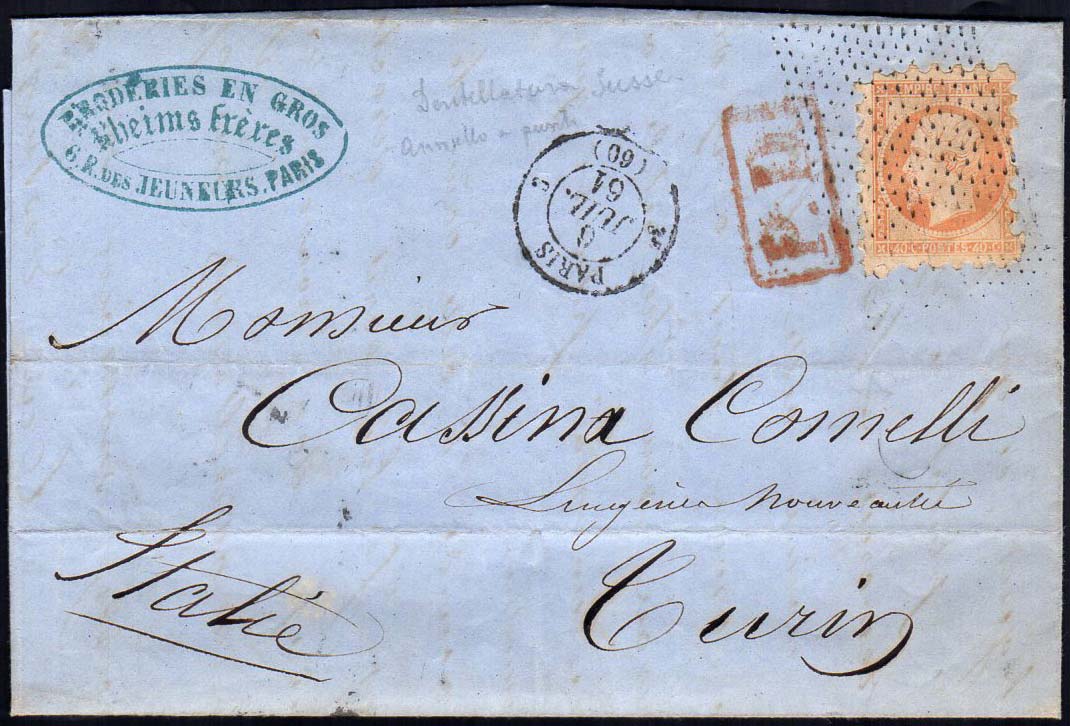 BRODERIES EN GROS
Rheims frères
6.R. DES JEUNEURS. PARIS
Dentellatura Susse
Annullo a punti
PARIS
6
JUIL.
61
(60)
P.D.
Monsieur
Cassina Comelli
Lingeries nouveautés
Turin
Italie
40 C POSTES 40 C